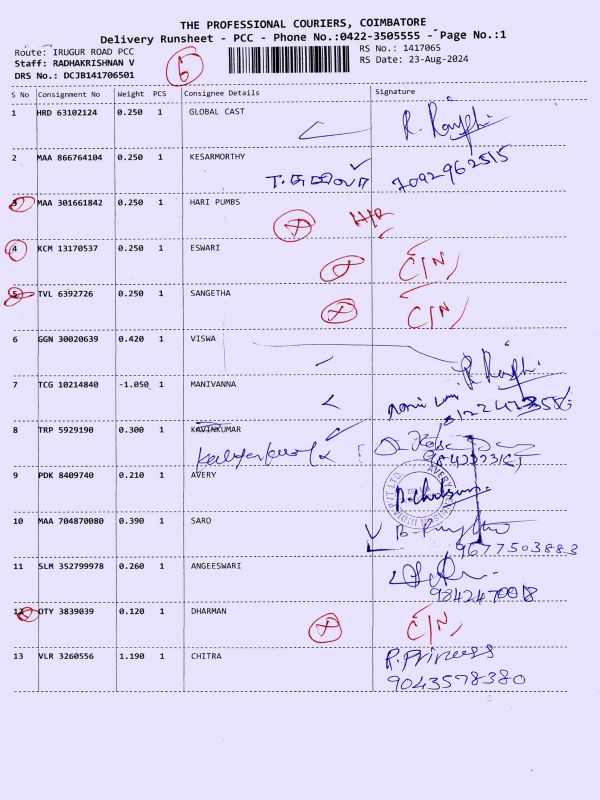 THE PROFESSIONAL COURIERS, COIMBATORE
Delivery Runsheet - PCC - Phone No.:0422-3505555 - Page No.:1
Route: IRUGUR ROAD PCC
Staff: RADHAKRISHNAN V
DRS No.: DCJB141706501
6
RS No.: 1417065
RS Date: 23-Aug-2024
S No Consignment No Weight PCS Consignee Details Signature
1 HRD 63102124 0.250 1 GLOBAL CAST
2 MAA 866764104 0.250 1 KESARMORTHY
7092962515
3 MAA 301661842 0.250 1 HARI PUMBS
4 KCM 13170537 0.250 1 ESWARI C/N
5 TVL 6392726 0.250 1 SANGETHA C/N
6 GGN 30020639 0.420 1 VISWA
7 TCG 10214840 -1.050 1 MANIVANNA
8 TRP 5929190 0.300 1 KAVINKUMAR
9 PDK 8409740 0.210 1 AVERY
10 MAA 704870080 0.390 1 SARO
9677503883
11 SLM 352799978 0.260 1 ANGEESWARI
9842470018
12 OTY 3839039 0.120 1 DHARMAN C/N
13 VLR 3260556 1.190 1 CHITRA R. Princess
9043578380